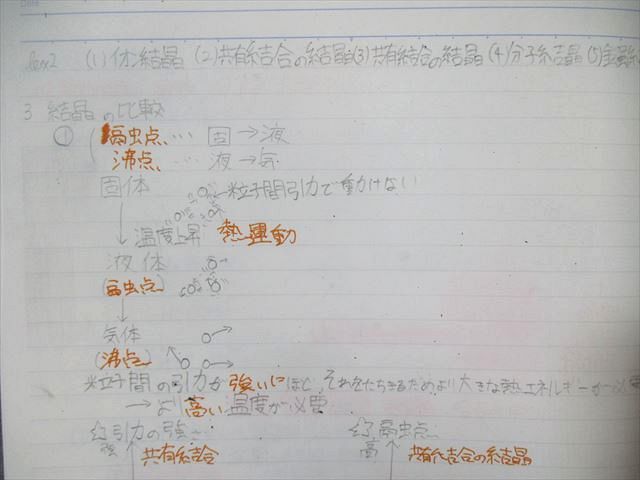 (1) イオン結晶 (2) 共有結合の結晶 (3) 共有結合の結晶 (4) 分子結晶 (5) 金属結
3 結晶の比較
① 融点… 固→液
沸点… 液→気
固体 粒子間引力で動けない
↓ 温度上昇 熱運動
液体
(融点)
↓
気体
(沸点)
粒子間の引力が強いほど、それをたちきるためより大きな熱エネルギーが必要
→より高い温度が必要
☆引力の強 ☆融点
強 共有結合 高 共有結合の結晶